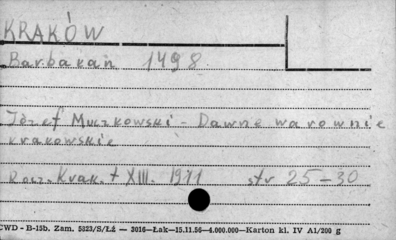 KRAKÓW
Barbakan 1498
Józef Muczkowski - Dawne warownie
krakowskie
Rocz. Krak. t XIII. 1911 str 25-30
CWD - B-15b. Zam. 5323/S/Łż — 3016—Łak—15.11.56—4.000.000—Karton kl. IV A1/200 g